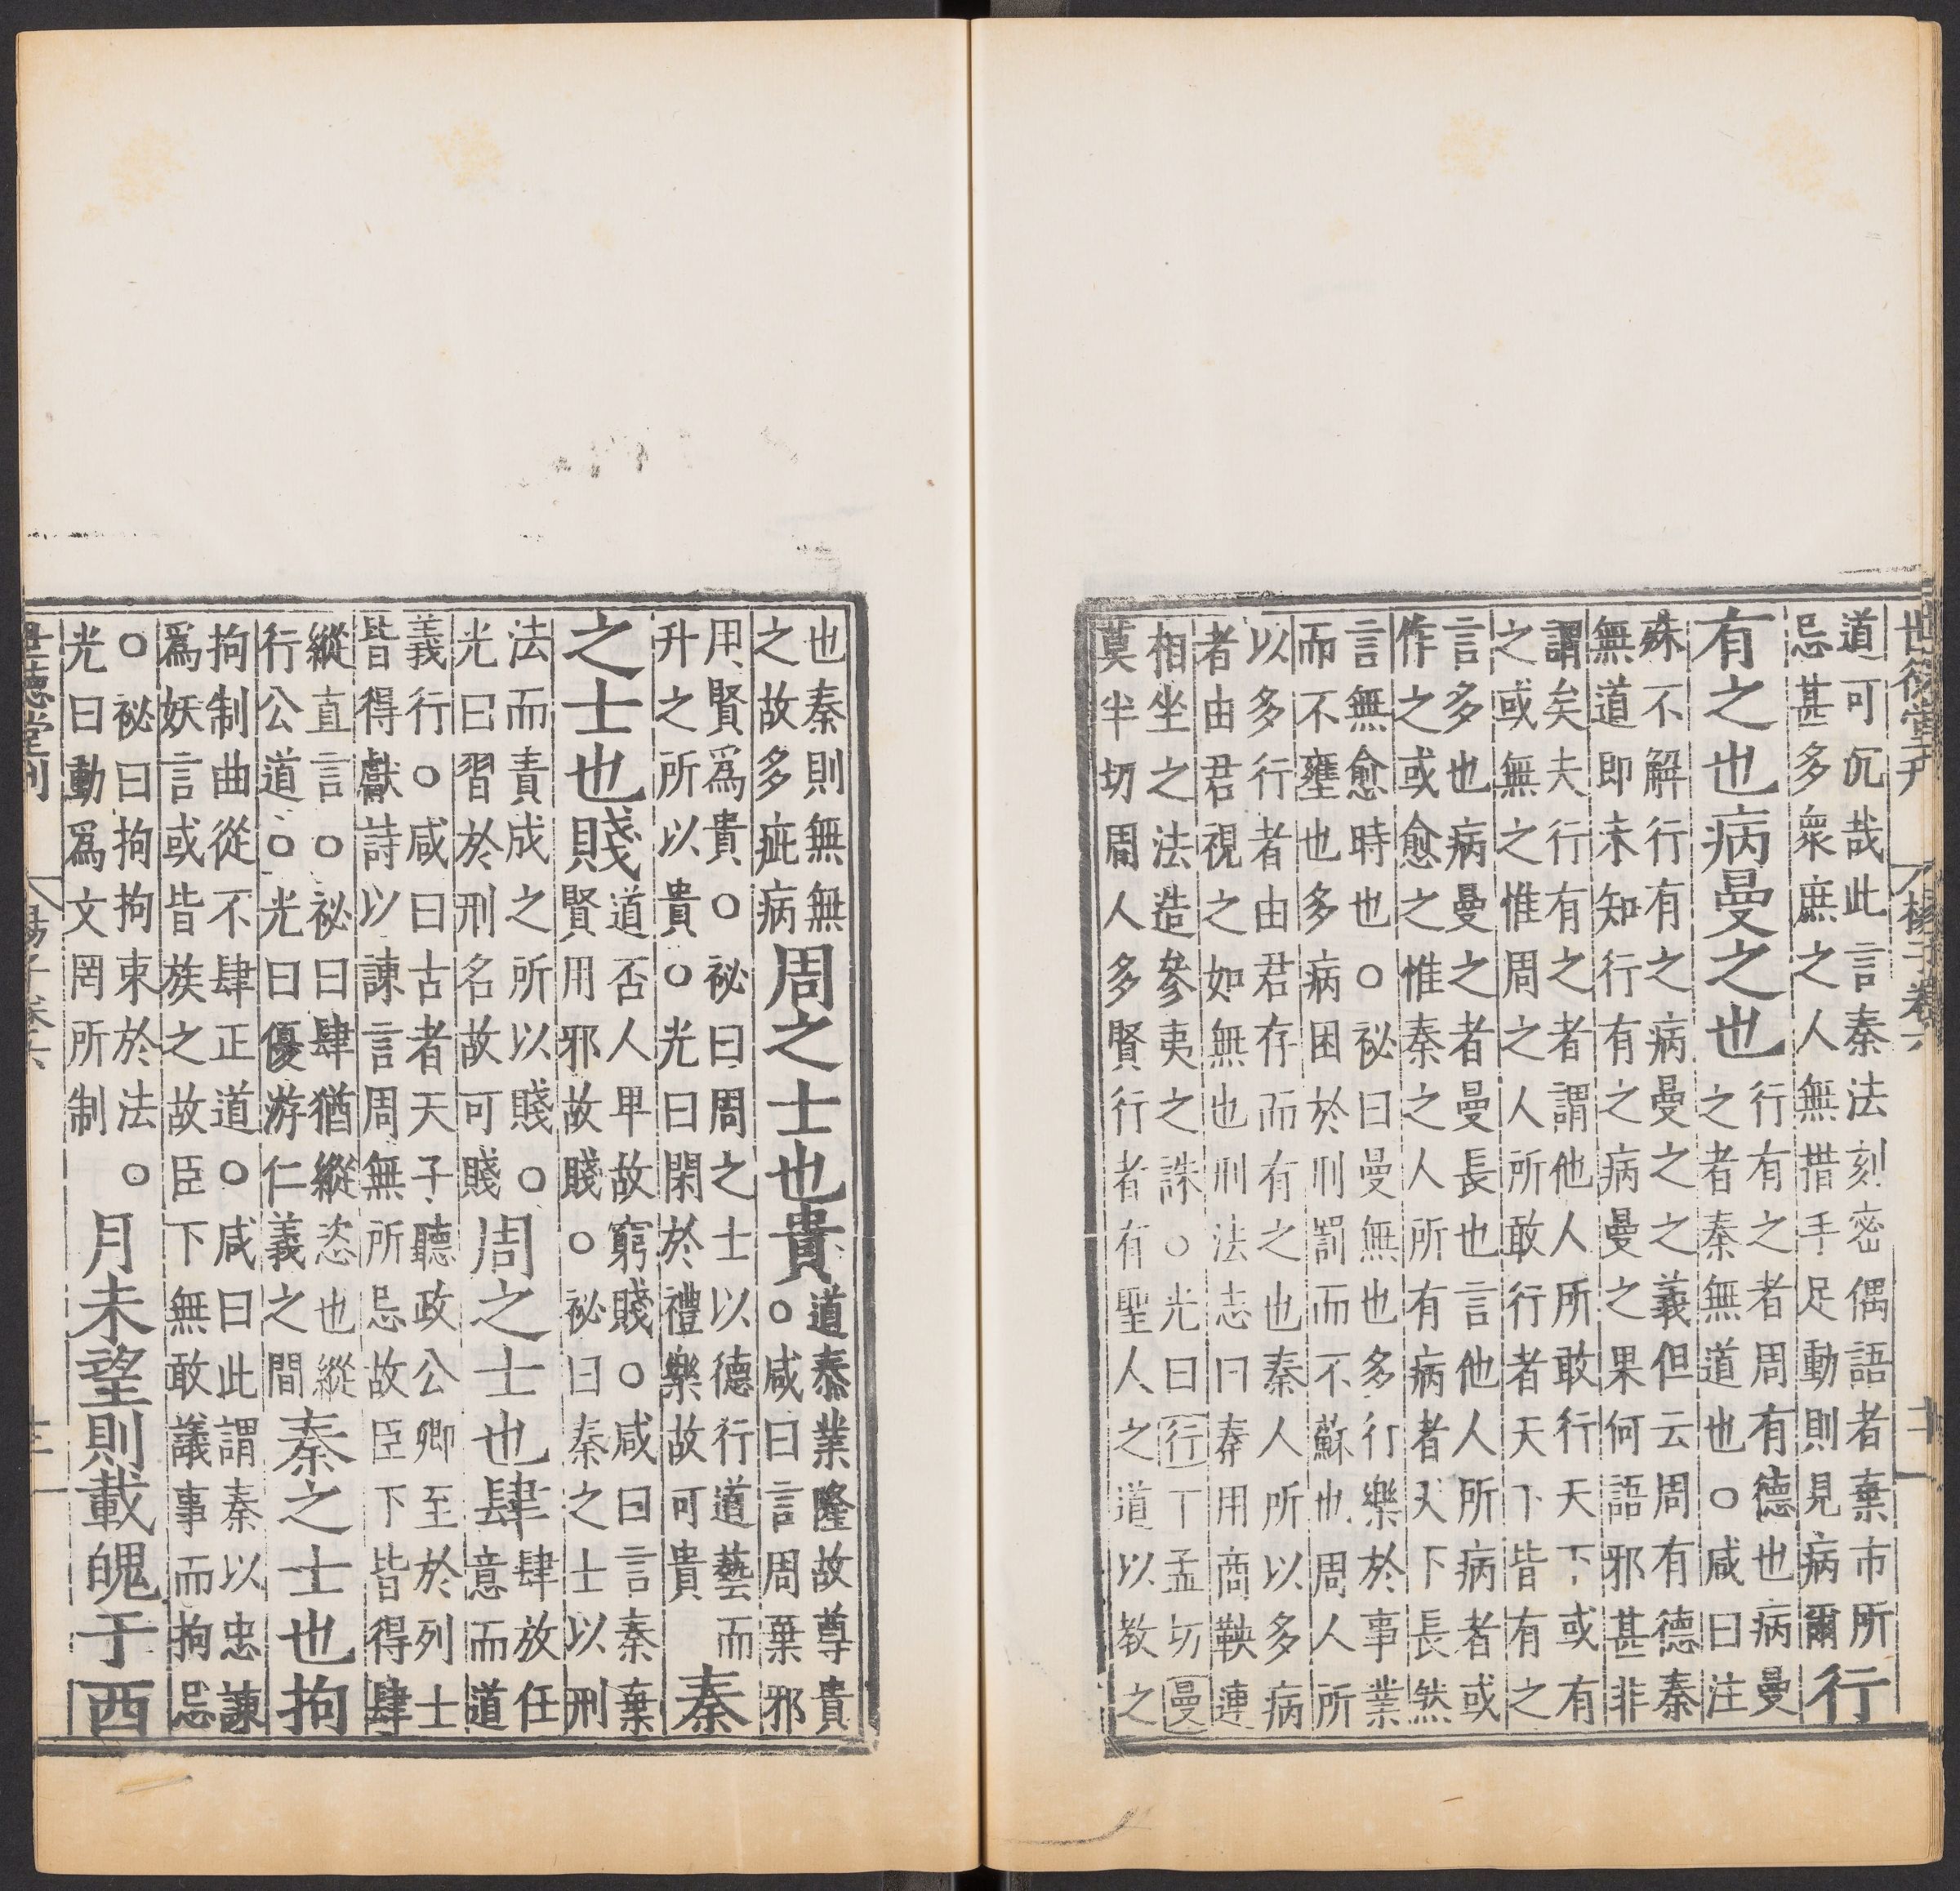 世德堂刊 揚子卷六
道可沉哉此言秦法刻密偶語者棄市所
忌甚多衆庶之人無措手足動則見病爾
行
有之也病曼之也
行有之者周有德也病曼
之者秦無道也○咸曰注
蘇不解行有之病曼之之義但云周有德秦
無道即未知行有之病曼之果何語邪甚非
謂矣夫行有之者謂他人所敢行天下或有
之或無之惟周之人所敢行者天下皆有之
言多也病曼之者曼長也言他人所病者或
作之或愈之惟秦之人所有病者天下長然
言無愈時也○祕曰曼無也多行樂於事業
而不壅也多病困於刑罰而不蘇也周人所
以多行者由君存而有之也秦人所以多病
者由君視之如無也刑法志曰秦用商鞅連
相坐之法造參夷之誅○光曰行丁孟切曼
莫半切周人多賢行者有聖人之道以教之
也秦則無無
之故多疵病
周之士也貴
道泰業隆故尊貴
○咸曰言周棄邪
用賢爲貴○祕曰周之士以德行道藝而
升之所以貴○光曰閑於禮樂故可貴
秦
之士也賤
道否人卑故窮賤○咸曰言秦棄
賢用邪故賤○祕曰秦之士以刑
法而責成之所以賤○
光曰習於刑名故可賤
周之士也肆
肆放任
意而道
義行○咸曰古者天子聽政公卿至於列士
皆得獻詩以諫言周無所忌故臣下皆得肆
縱直言○祕曰肆猶縱恣也縱
行公道○光曰優游仁義之間
秦之士也拘
拘制曲從不肆正道○咸曰此謂秦以忠諫
爲妖言或皆族之故臣下無敢議事而拘忌
○祕曰拘拘束於法○
光曰動爲文罔所制
月未望則載魄于西
世德堂刊 揚子卷六